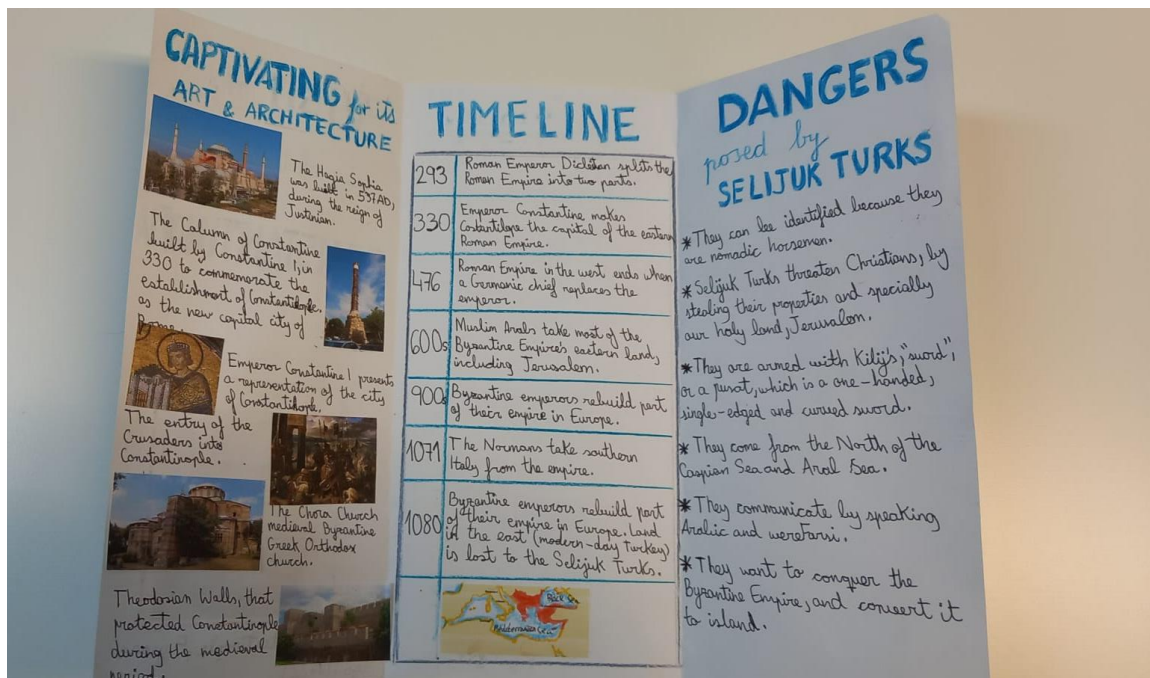 CAPTIVATING for its
ART & ARCHITECTURE
The Hagia Sophia
was built in 537AD,
during the reign of
Justinian.
The Calumn of Constantine
built by Constantine I, in
330 to commemorate the
establishment of Constantilople.
as the new capital city of
Emperor Constantine I presents
a representation of the city
of Constantilople.
The entry of the
Crusaders into
Constantinople.
The Chora Church
medieval Byzantine
Greek Orthodox
church.
Theodosian Walls, that
protected Constantinople
during the medieval
period.
TIMELINE
293
Roman Emperor Dicletian splits the
Roman Empire into two parts.
330
Emperor Constantine makes
Costantilope the capital of the eastern
Roman Empire.
476
Roman Empire in the west ends when
a Germanic chief replaces the
emperor.
600s
Muslim Arabs take most of the
Byzantine Empire's eastern land,
including Jerusalem.
900s
Byzantine emperors rebuild part
of their empire in Europe.
1071
The Normans take southern
Italy from the empire.
1080
Byzantine emperors rebuild part
of their empire in Europe. Land
in the east (modern-day Turkey)
is lost to the Selijuk Turks.
Black Sea
Mediterranean Sea
DANGERS
posed by
SELIJUK TURKS
* They can be identified because they
are nomadic horsemen.
* Selijuk Turks threaten Christians, by
stealing their properties and specially
our holy land, Jerusalon.
* They are armed with Kilij's, "sword",
or a pusat, which is a one-handed,
single-edged and curved sword.
* They come from the North of the
Caspian Sea and Aral Sea.
* They communicate by speaking
Arabic and wereFarsi.
* They want to conquer the
Byzantine Empire, and convert it
to island.